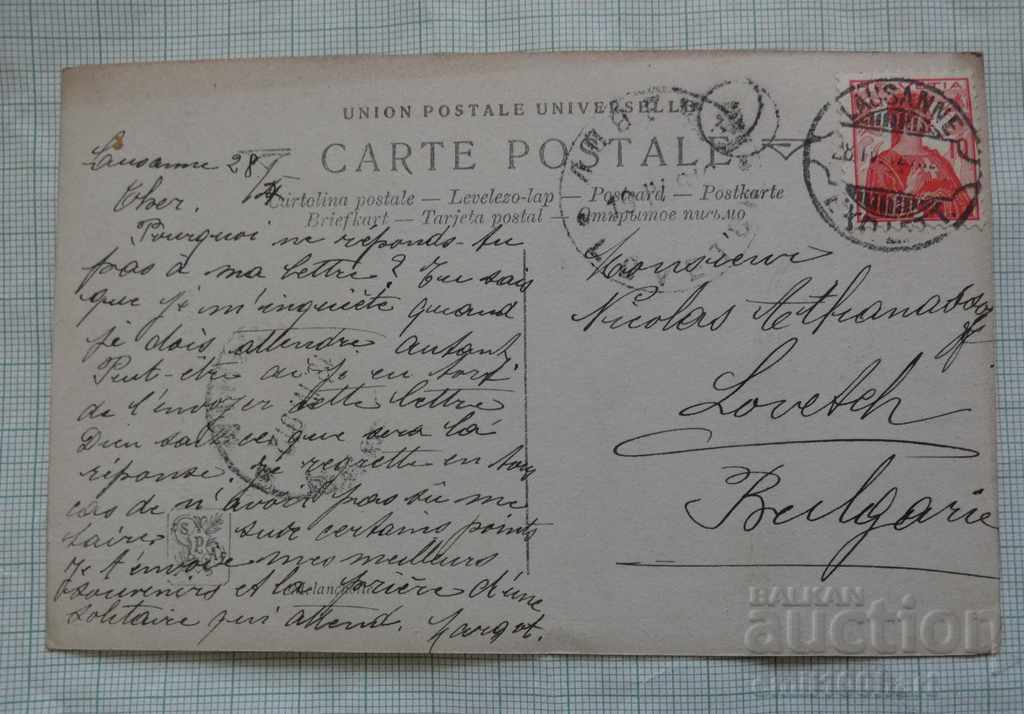 UNION POSTALE UNIVERSELLE
CARTE POSTALE
Cartolina postale – Levelezo-lap – Postcard – Postkarte
Briefkart – Tarjeta postal – Открытое письмо
LAUSANNE
Lausanne 28
Cher.
Pourquoi ne réponds-tu
pas à ma lettre? Tu sais
que je m'inquiète quand
je dois attendre autant
Peut-être ai-je eu tort
de t'envoyer cette lettre
Dieu sait ce que sera la
réponse. Je regrette en tout
cas de n'avoir pas su me
taire sur certains points
Je t'envoie mes meilleurs
souvenirs et la prière d'une
solitaire qui attend. Margot.
Monsieur
Nicolas Athanassoff
Lovetch
Bulgarie
BALKAN
auction